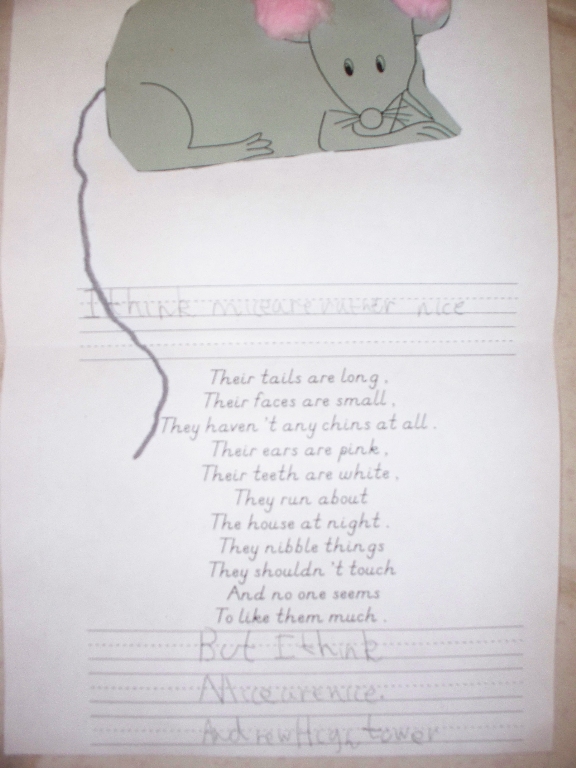 I think mice are rather nice
Their tails are long,
Their faces are small,
They haven't any chins at all.
Their ears are pink,
Their teeth are white,
They run about
The house at night.
They nibble things
They shouldn't touch
And no one seems
To like them much.
But I think
Mice are nice.
Andrew Hightower